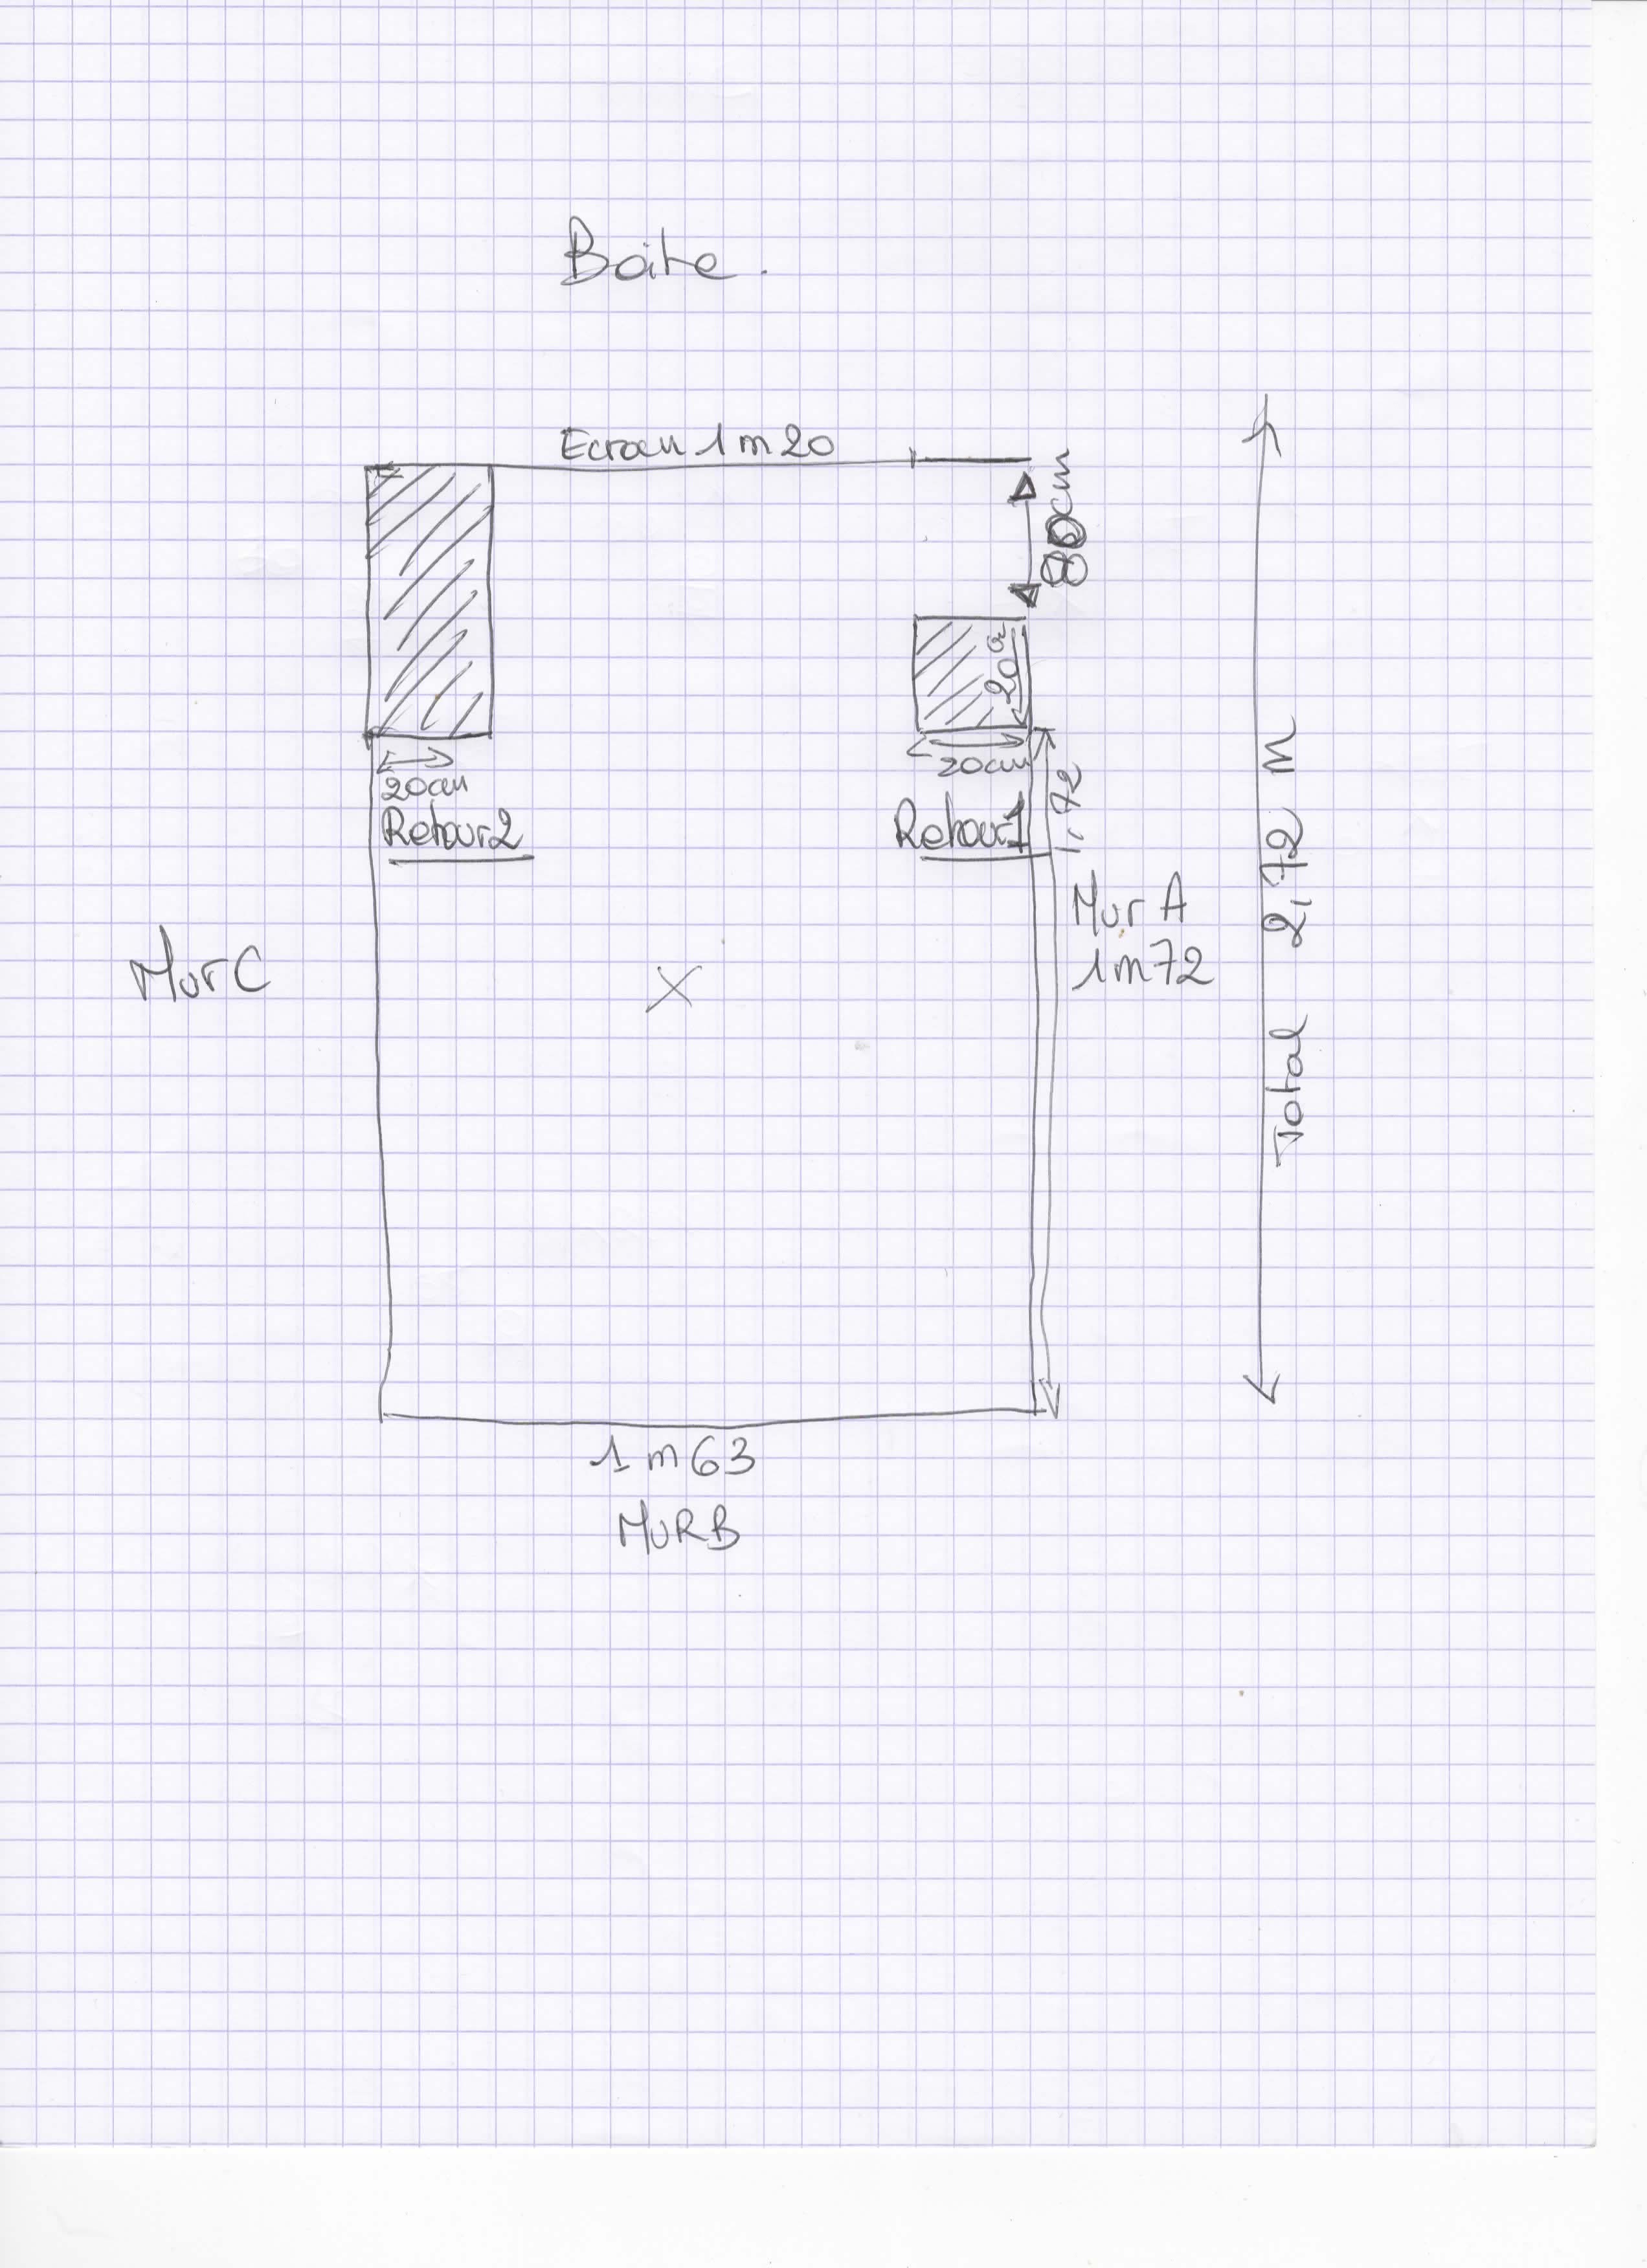 Boite.
Ecran 1m20
80cm
20cm
20cm
20cm
Retour2
Retour1
1,72
Mur A
1m72
Mur C
Total 2,72 m
1m63
MURB